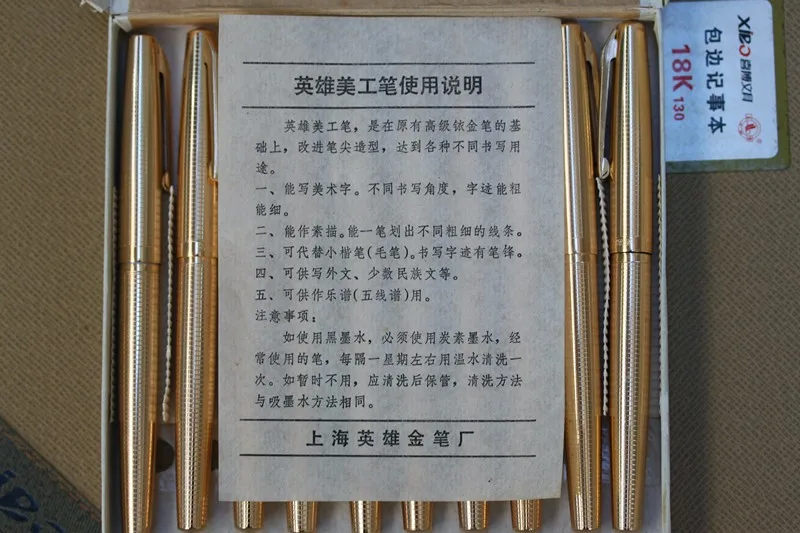 英雄美工笔使用说明
英雄美工笔，是在原有高级铱金笔的基
础上，改进笔尖造型，达到各种不同书写用
途。
一、能写美术字。不同书写角度，字迹能粗
能细。
二、能作素描。能一笔划出不同粗细的线条。
三、可代替小楷笔(毛笔)。书写字迹有笔锋。
四、可供写外文、少数民族文等。
五、可供作乐谱(五线谱)用。
注意事项：
如使用黑墨水，必须使用炭素墨水，经
常使用的笔，每隔一星期左右用温水清洗一
次。如暂时不用，应清洗后保管，清洗方法
与吸墨水方法相同。
上海英雄金笔厂
喜博文具
包边记事本
18K 130